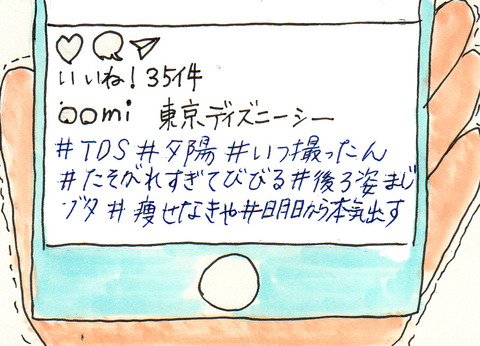 いいね！35件
○○mi 東京ディズニーシー
#TDS #夕陽 #いつ撮ったん
#たそがれすぎてびびる#後ろ姿まじ
ブタ# 痩せなきゃ#明日から本気出す